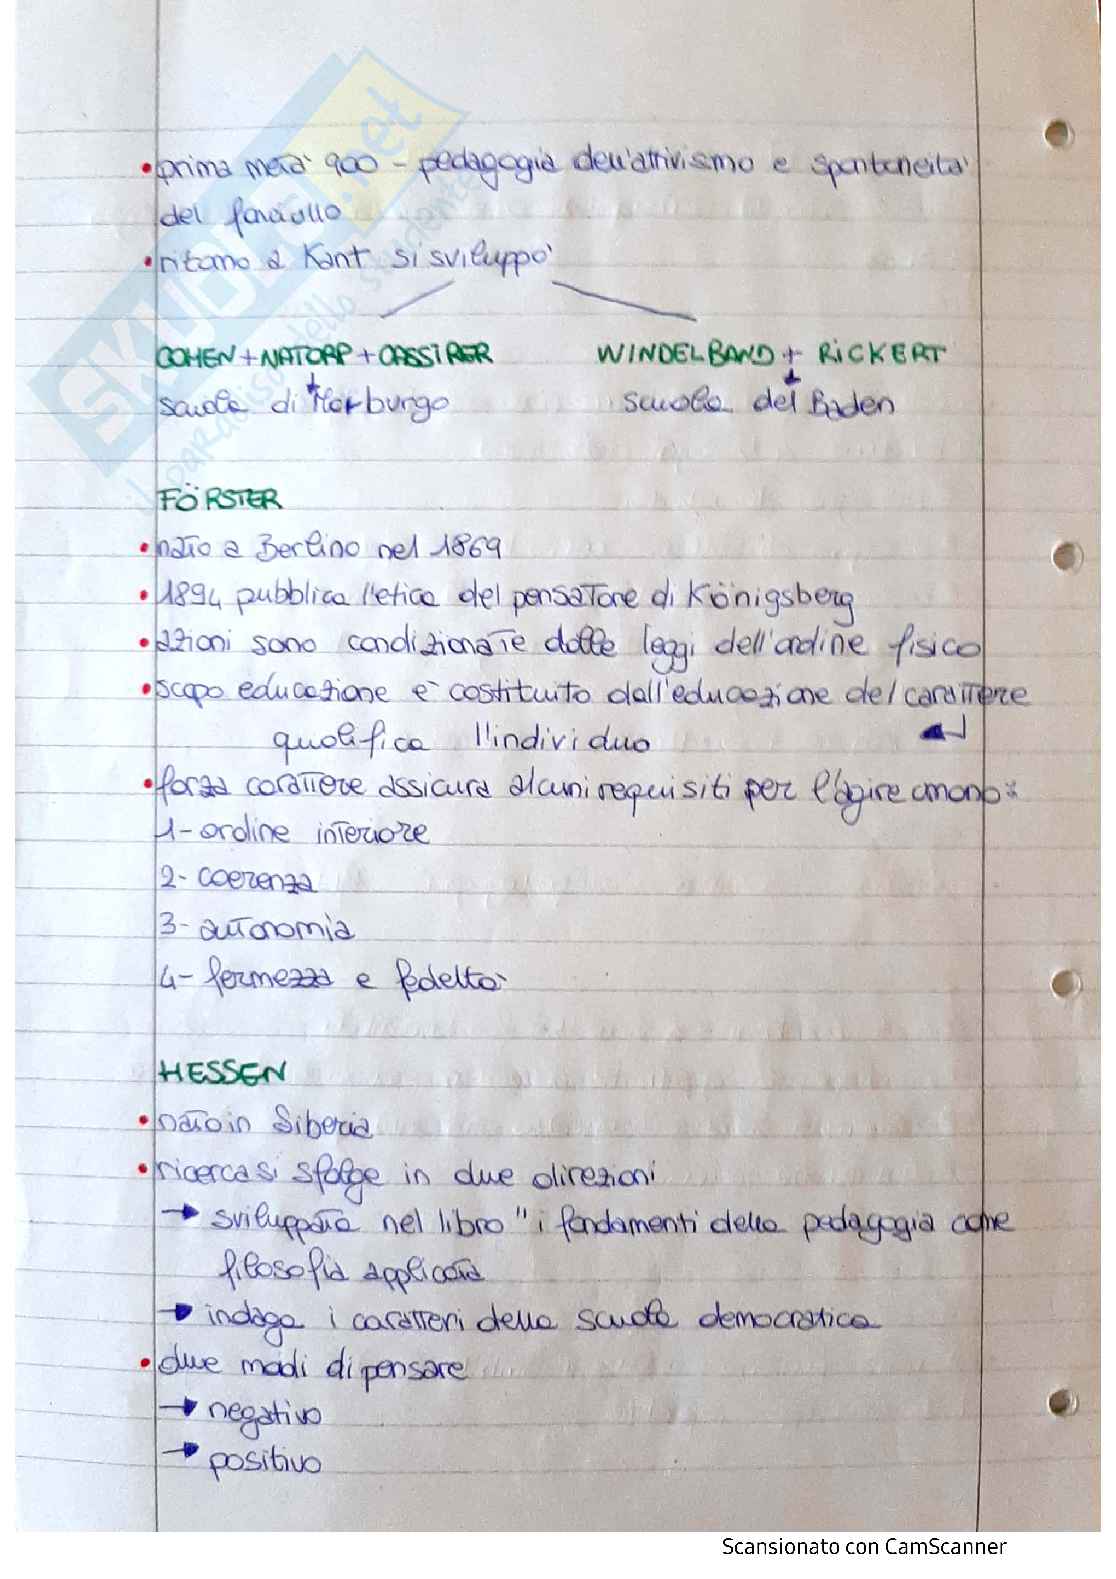 • prima metà 900 - pedagogia dell'attivismo e spontaneità
del fanciullo
• ritorno a Kant si sviluppò
COHEN + NATORP + CASSIRER WINDELBAND + RICKERT
scuola di Marburgo scuola del Baden
FÖRSTER
• nato a Berlino nel 1869
• 1894 pubblica l'etica del pensatore di Königsberg
• azioni sono condizionate dalle leggi dell'ordine fisico
• scopo educazione è costituito dall'educazione del carattere
qualifica l'individuo
• forza carattere assicura alcuni requisiti per l'agire umano:
1- ordine interiore
2- coerenza
3- autonomia
4- fermezza e fedeltà
HESSEN
• nato in Siberia
• ricerca si sfolge in due direzioni
→ sviluppata nel libro "i fondamenti della pedagogia come
filosofia applicata
→ indaga i caratteri della scuola democratica
• due modi di pensare
→ negativo
→ positivo
SKUOLA.net
il paradiso dello studente
Scansionato con CamScanner